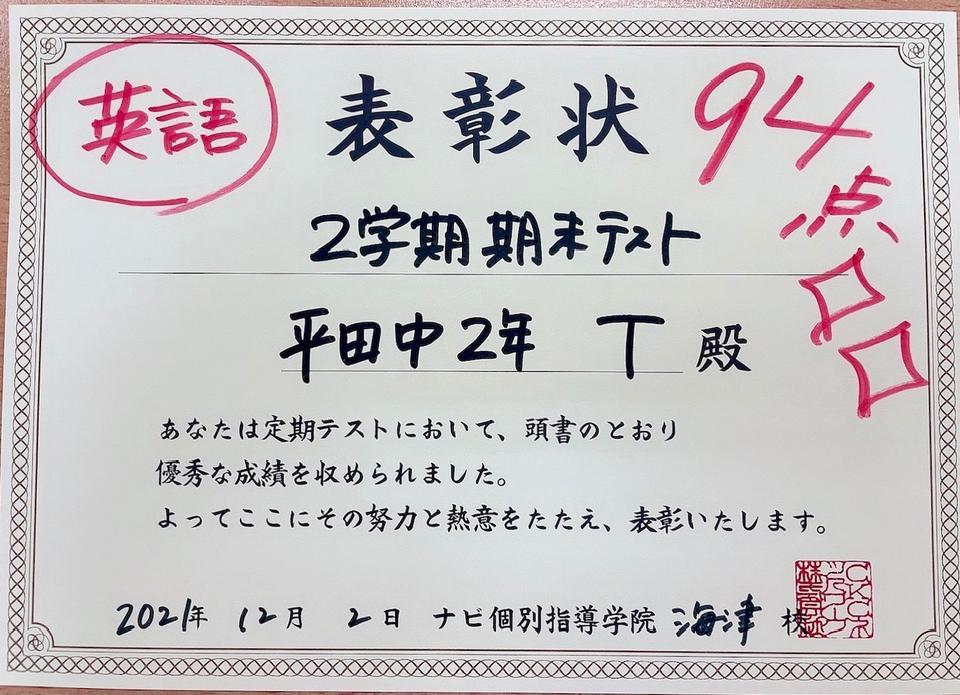 英語
表彰状
94点
2学期 期末テスト
平田中2年 T 殿
あなたは定期テストにおいて、頭書のとおり
優秀な成績を収められました。
よってここにその努力と熱意をたたえ、表彰いたします。
2021年 12月 2日 ナビ個別指導学院 海津 校